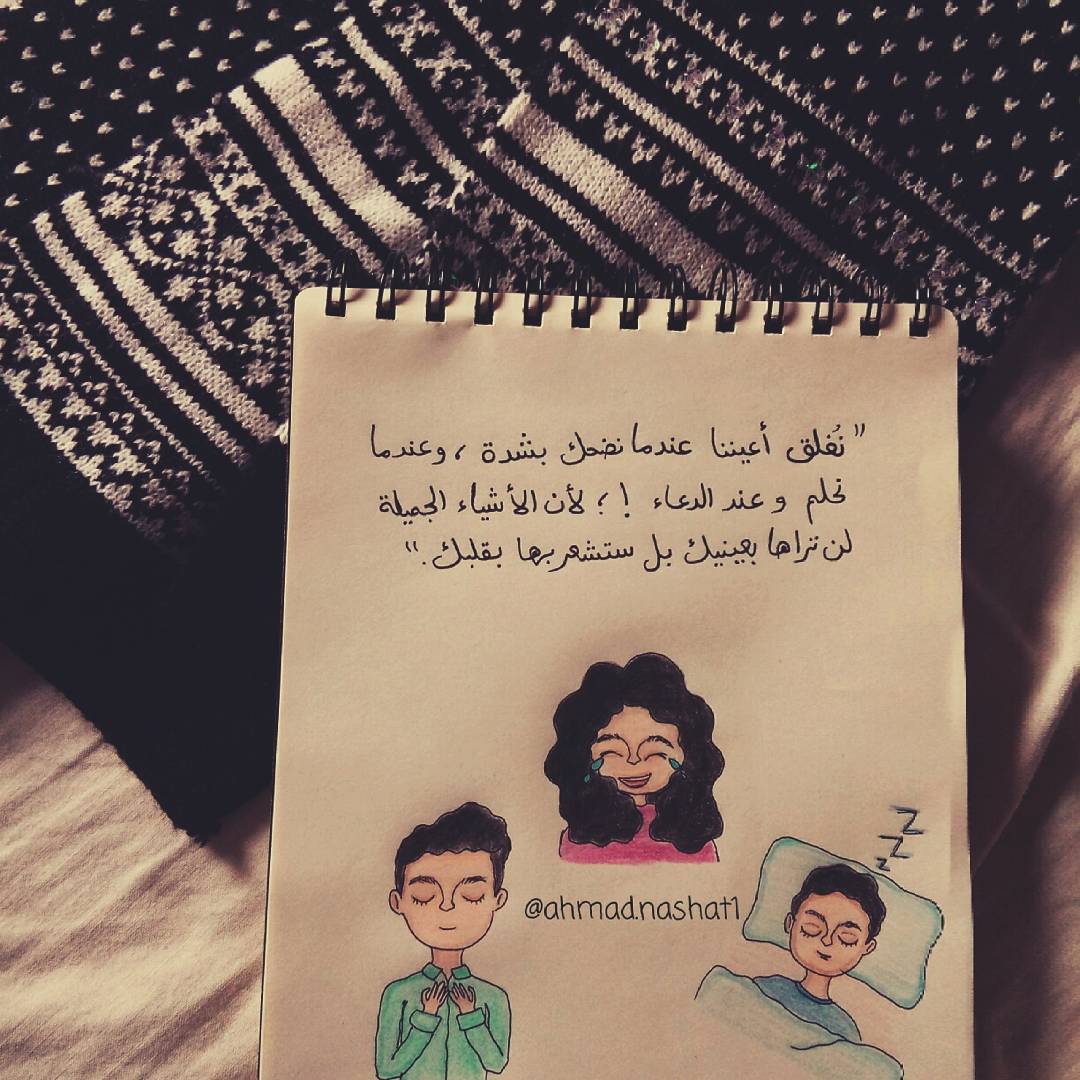 "نُغلق أعيننا عندما نضحك بشدة ، وعندما
نحلم وعند الدعاء ! ؛ لأن الأشياء الجميلة
لن تراها بعينيك بل ستشعر بها بقلبك . "
zzz
@ahmad.nashat1